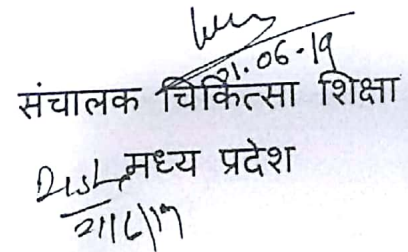 21.06-19
संचालक चिकित्सा शिक्षा
मध्य प्रदेश
21/6/19